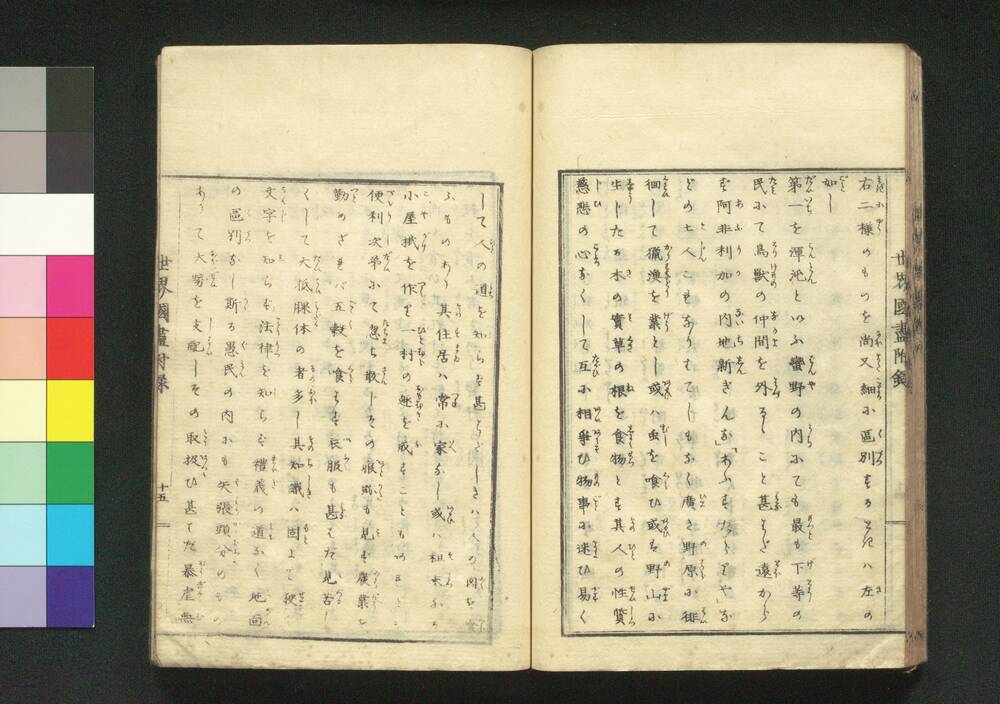 世界國盡附録
右二様のものを尚又細に區別するときハ左の
如し
第一を渾沌といふ蠻野の内にても最も下等の
民にて鳥獣の仲間を外るゝこと甚だ遠からず
阿非利加の内地新ぎんな
どの土人こ
もなく廣き野原に徘
徊して獵漁を業とし或ハ虫を喰ひ或は野山に
生したる木の實草の根を食物とす其人の性質
慈悲の心なくして互に相爭ひ物事に迷ひ易く
して人の道を知らず甚だしきハ人の肉を食
ふものあり其住居ハ常に家なし或ハ粗末なる
小屋抔を作り一村の趣を成すことあるも
便利次第にて忽ち散してその眼跡も見ず農業を
勤めざれバ五穀を食はず衣服も甚だ見苦し
くして大抵裸体の者多し其知識ハ固より狭く
文字を知らず法律を知らず禮義の道なく地面
の區別なし斯る愚民の内にも矢張頭分のもの
ありて大勢を支配しその取扱ひ甚だ暴虐無
世界國盡附録
十五